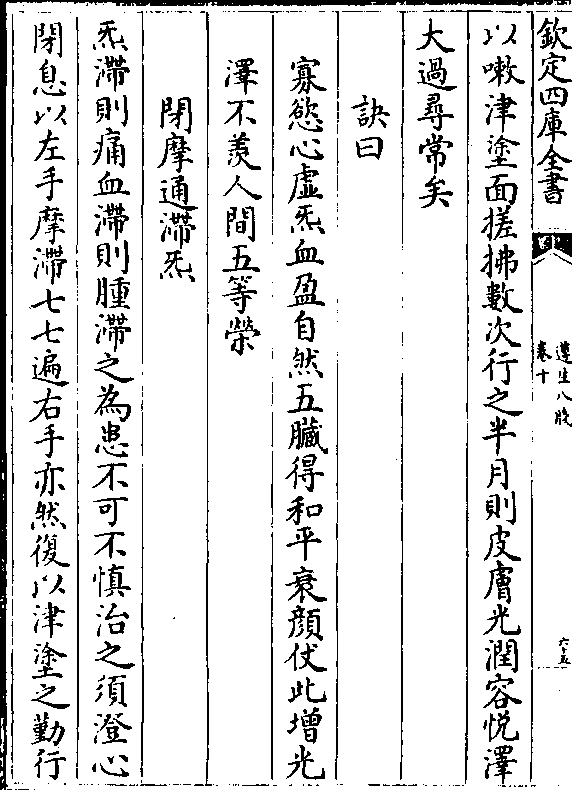 欽定四庫全書
遵生八牋
卷十
六十五
以嗽津塗面搓拂數次行之半月則皮膚光潤容悦澤
大過尋常矣
訣曰
寡慾心虛炁血盈自然五臟得和平衰顔仗此增光
澤不羨人間五等榮
閉摩通滯炁
炁滯則痛血滯則腫滯之為患不可不慎治之須澄心
閉息以左手摩滯七七遍右手亦然復以津塗之勤行